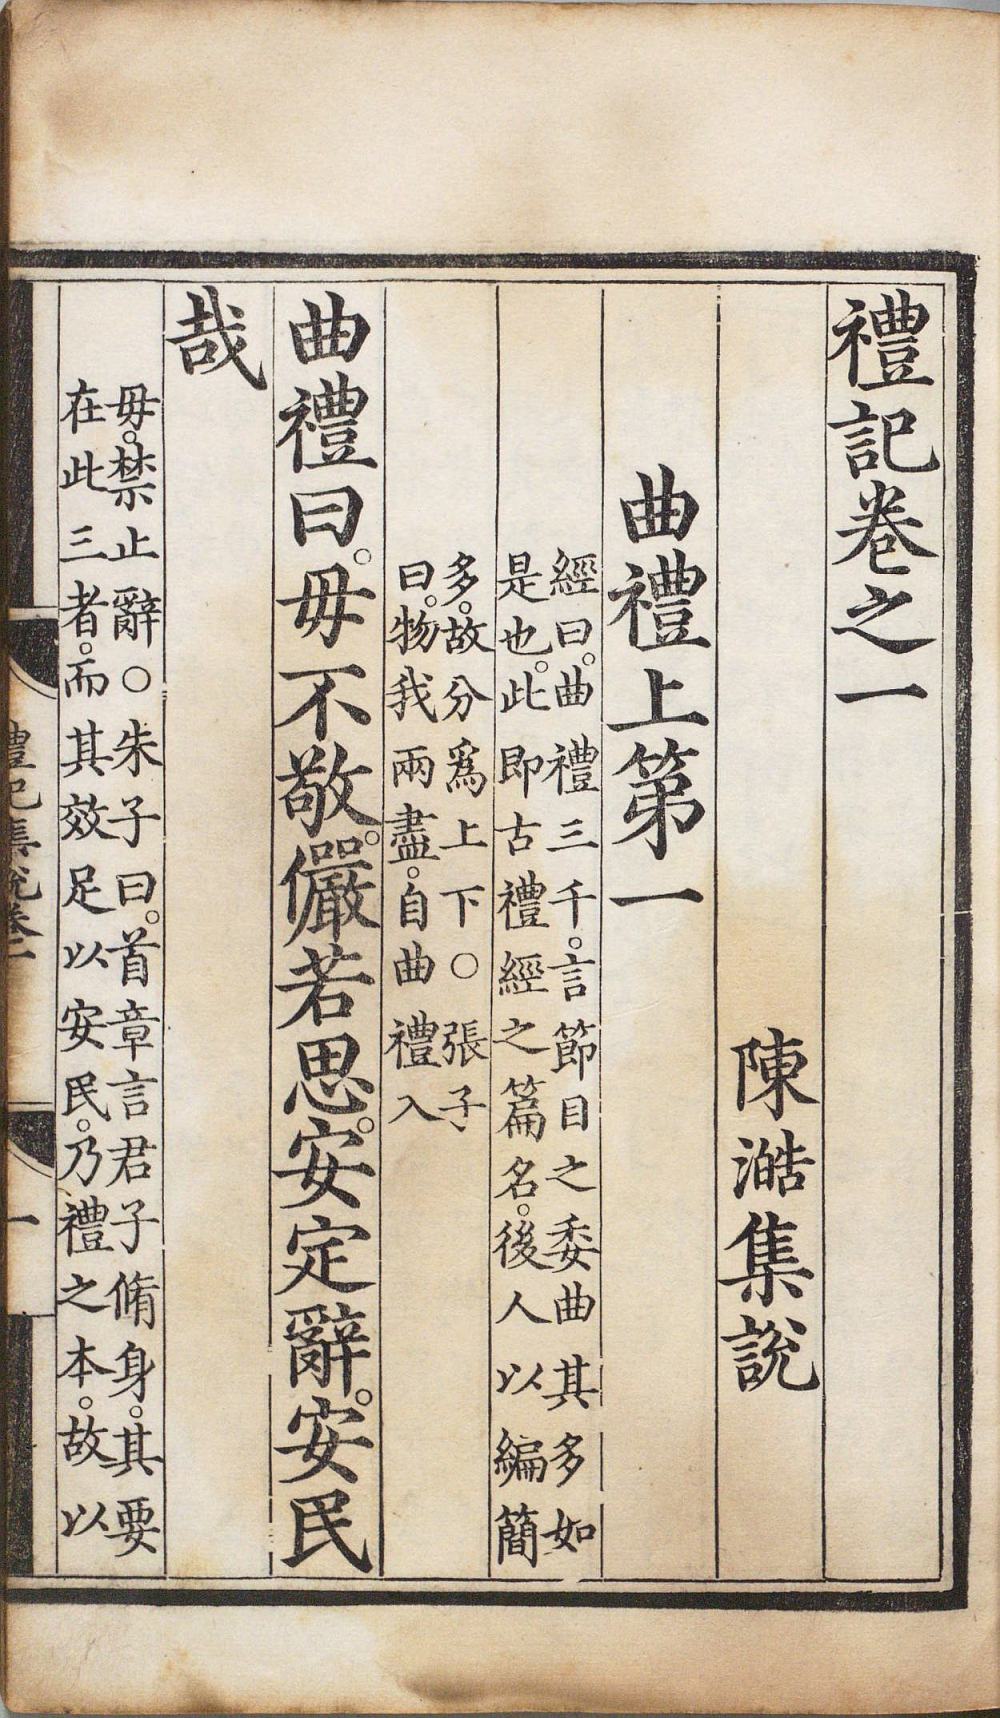 禮記卷之一
陳澔集說
曲禮上第一
經曰。曲禮三千。言節目之委曲其多如
是也。此即古禮經之篇名。後人以編簡
多。故分爲上下○張子
曰。物我兩盡。自曲禮入
曲禮曰。毋不敬。儼若思。安定辭。安民
哉
毋。禁止辭○朱子曰。首章言君子脩身。其要
在此三者。而其效足以安民。乃禮之本。故以
禮記集說卷一
一